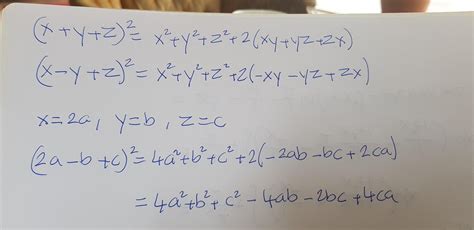 (x+y+z)²= x²+y²+z²+2(xy+yz+zx)
(x-y+z)²= x²+y²+z²+2(-xy-yz+zx)
x=2a, y=b, z=c
(2a-b+c)²=4a²+b²+c²+2(-2ab-bc+2ca)
=4a²+b²+c²-4ab-2bc+4ca